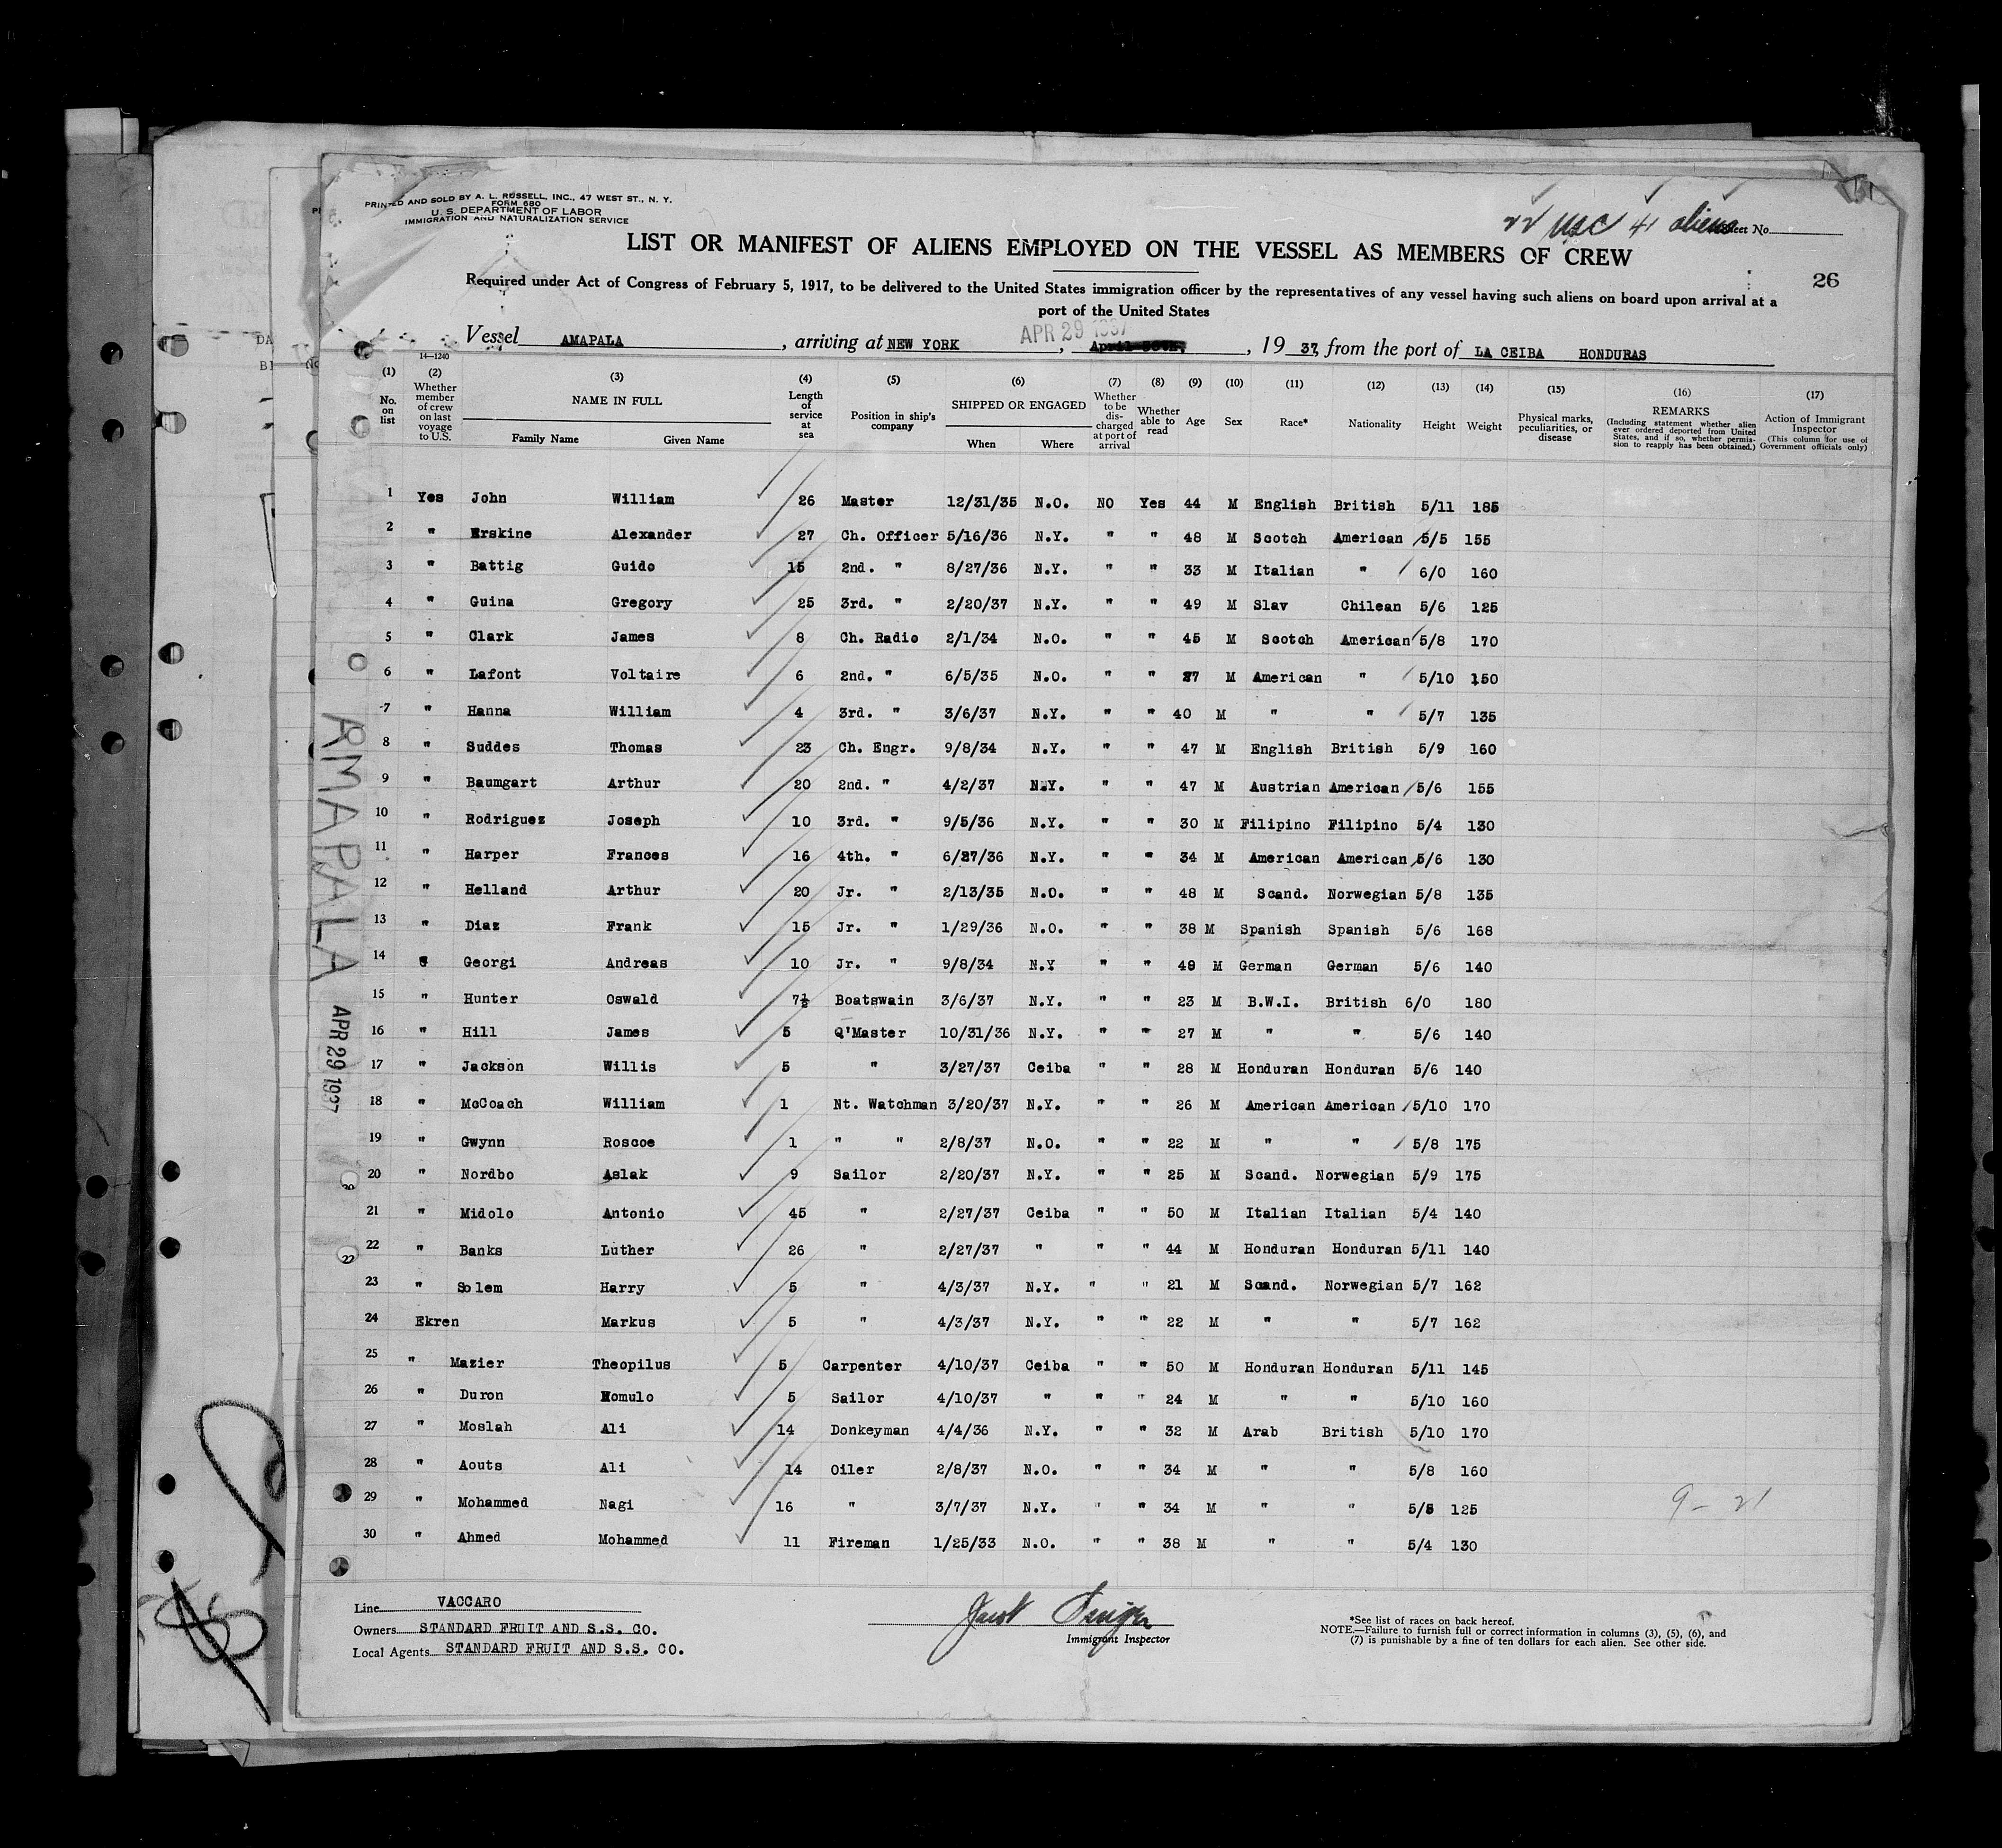 PRINTED AND SOLD BY A. L. RUSSELL, INC., 47 WEST ST., N. Y.
FORM 680
U. S. DEPARTMENT OF LABOR
IMMIGRATION AND NATURALIZATION SERVICE
22 USC 41 aliens Sheet No.
LIST OR MANIFEST OF ALIENS EMPLOYED ON THE VESSEL AS MEMBERS OF CREW
26
Required under Act of Congress of February 5, 1917, to be delivered to the United States immigration officer by the representatives of any vessel having such aliens on board upon arrival at a
port of the United States
APR 29 1937
Vessel AMAPALA, arriving at NEW YORK, April 30th, 1937, from the port of LA CEIBA HONDURAS
14—1240
(1) No. on list (2) Whether member of crew on last voyage to U.S. (3) NAME IN FULL Family Name Given Name (4) Length of service at sea (5) Position in ship's company (6) SHIPPED OR ENGAGED When Where (7) Whether to be discharged at port of arrival (8) Whether able to read (9) Age (10) Sex (11) Race* (12) Nationality (13) Height (14) Weight (15) Physical marks, peculiarities, or disease (16) REMARKS (Including statement whether alien ever ordered deported from United States, and if so, whether permission to reapply has been obtained.) (17) Action of Immigrant Inspector (This column for use of Government officials only)
1 Yes John William 26 Master 12/31/35 N.O. NO Yes 44 M English British 5/11 185
2 " Erskine Alexander 27 Ch. Officer 5/16/36 N.Y. " " 48 M Scotch American 5/5 155
3 " Battig Guido 15 2nd. " 8/27/36 N.Y. " " 33 M Italian " 6/0 160
4 " Guina Gregory 25 3rd. " 2/20/37 N.Y. " " 49 M Slav Chilean 5/6 125
5 " Clark James 8 Ch. Radio 2/1/34 N.O. " " 45 M Scotch American 5/8 170
6 " Lafont Voltaire 6 2nd. " 6/5/35 N.O. " " 27 M American " 5/10 150
7 " Hanna William 4 3rd. " 3/6/37 N.Y. " " 40 M " " 5/7 135
8 " Suddes Thomas 23 Ch. Engr. 9/8/34 N.Y. " " 47 M English British 5/9 160
9 " Baumgart Arthur 20 2nd. " 4/2/37 N.Y. " " 47 M Austrian American 5/6 155
10 " Rodriguez Joseph 10 3rd. " 9/5/36 N.Y. " " 30 M Filipino Filipino 5/4 130
11 " Harper Frances 16 4th. " 6/27/36 N.Y. " " 34 M American American 5/6 130
12 " Helland Arthur 20 Jr. " 2/13/35 N.O. " " 48 M Scand. Norwegian 5/8 135
13 " Diaz Frank 15 Jr. " 1/29/36 N.O. " " 38 M Spanish Spanish 5/6 168
14 " Georgi Andreas 10 Jr. " 9/8/34 N.Y " " 49 M German German 5/6 140
15 " Hunter Oswald 7½ Boatswain 3/6/37 N.Y. " " 23 M B.W.I. British 6/0 180
16 " Hill James 5 Q'Master 10/31/36 N.Y. " " 27 M " " 5/6 140
17 " Jackson Willis 5 " 3/27/37 Ceiba " " 28 M Honduran Honduran 5/6 140
18 " McCoach William 1 Nt. Watchman 3/20/37 N.Y. " " 26 M American American 5/10 170
19 " Gwynn Roscoe 1 " " 2/8/37 N.O. " " 22 M " " 5/8 175
20 " Nordbo Aslak 9 Sailor 2/20/37 N.Y. " " 25 M Scand. Norwegian 5/9 175
21 " Midolo Antonio 45 " 2/27/37 Ceiba " " 50 M Italian Italian 5/4 140
22 " Banks Luther 26 " 2/27/37 " " " 44 M Honduran Honduran 5/11 140
23 " Solem Harry 5 " 4/3/37 N.Y. " " 21 M Scand. Norwegian 5/7 162
24 Ekren Markus 5 " 4/3/37 N.Y. " " 22 M " " 5/7 162
25 " Mazier Theopilus 5 Carpenter 4/10/37 Ceiba " " 50 M Honduran Honduran 5/11 145
26 " Duron Romulo 5 Sailor 4/10/37 " " " 24 M " " 5/10 160
27 " Moslah Ali 14 Donkeyman 4/4/36 N.Y. " " 32 M Arab British 5/10 170
28 " Aouts Ali 14 Oiler 2/8/37 N.O. " " 34 M " " 5/8 160
29 " Mohammed Nagi 16 " 3/7/37 N.Y. " " 34 M " " 5/5 125
30 " Ahmed Mohammed 11 Fireman 1/25/33 N.O. " " 38 M " " 5/4 130
9 - 21
AMAPALA
APR 29 1937
Line VACCARO
Owners STANDARD FRUIT AND S.S. CO.
Local Agents STANDARD FRUIT AND S.S. CO.
Jacob
Immigrant Inspector
*See list of races on back hereof.
NOTE.—Failure to furnish full or correct information in columns (3), (5), (6), and
(7) is punishable by a fine of ten dollars for each alien. See other side.